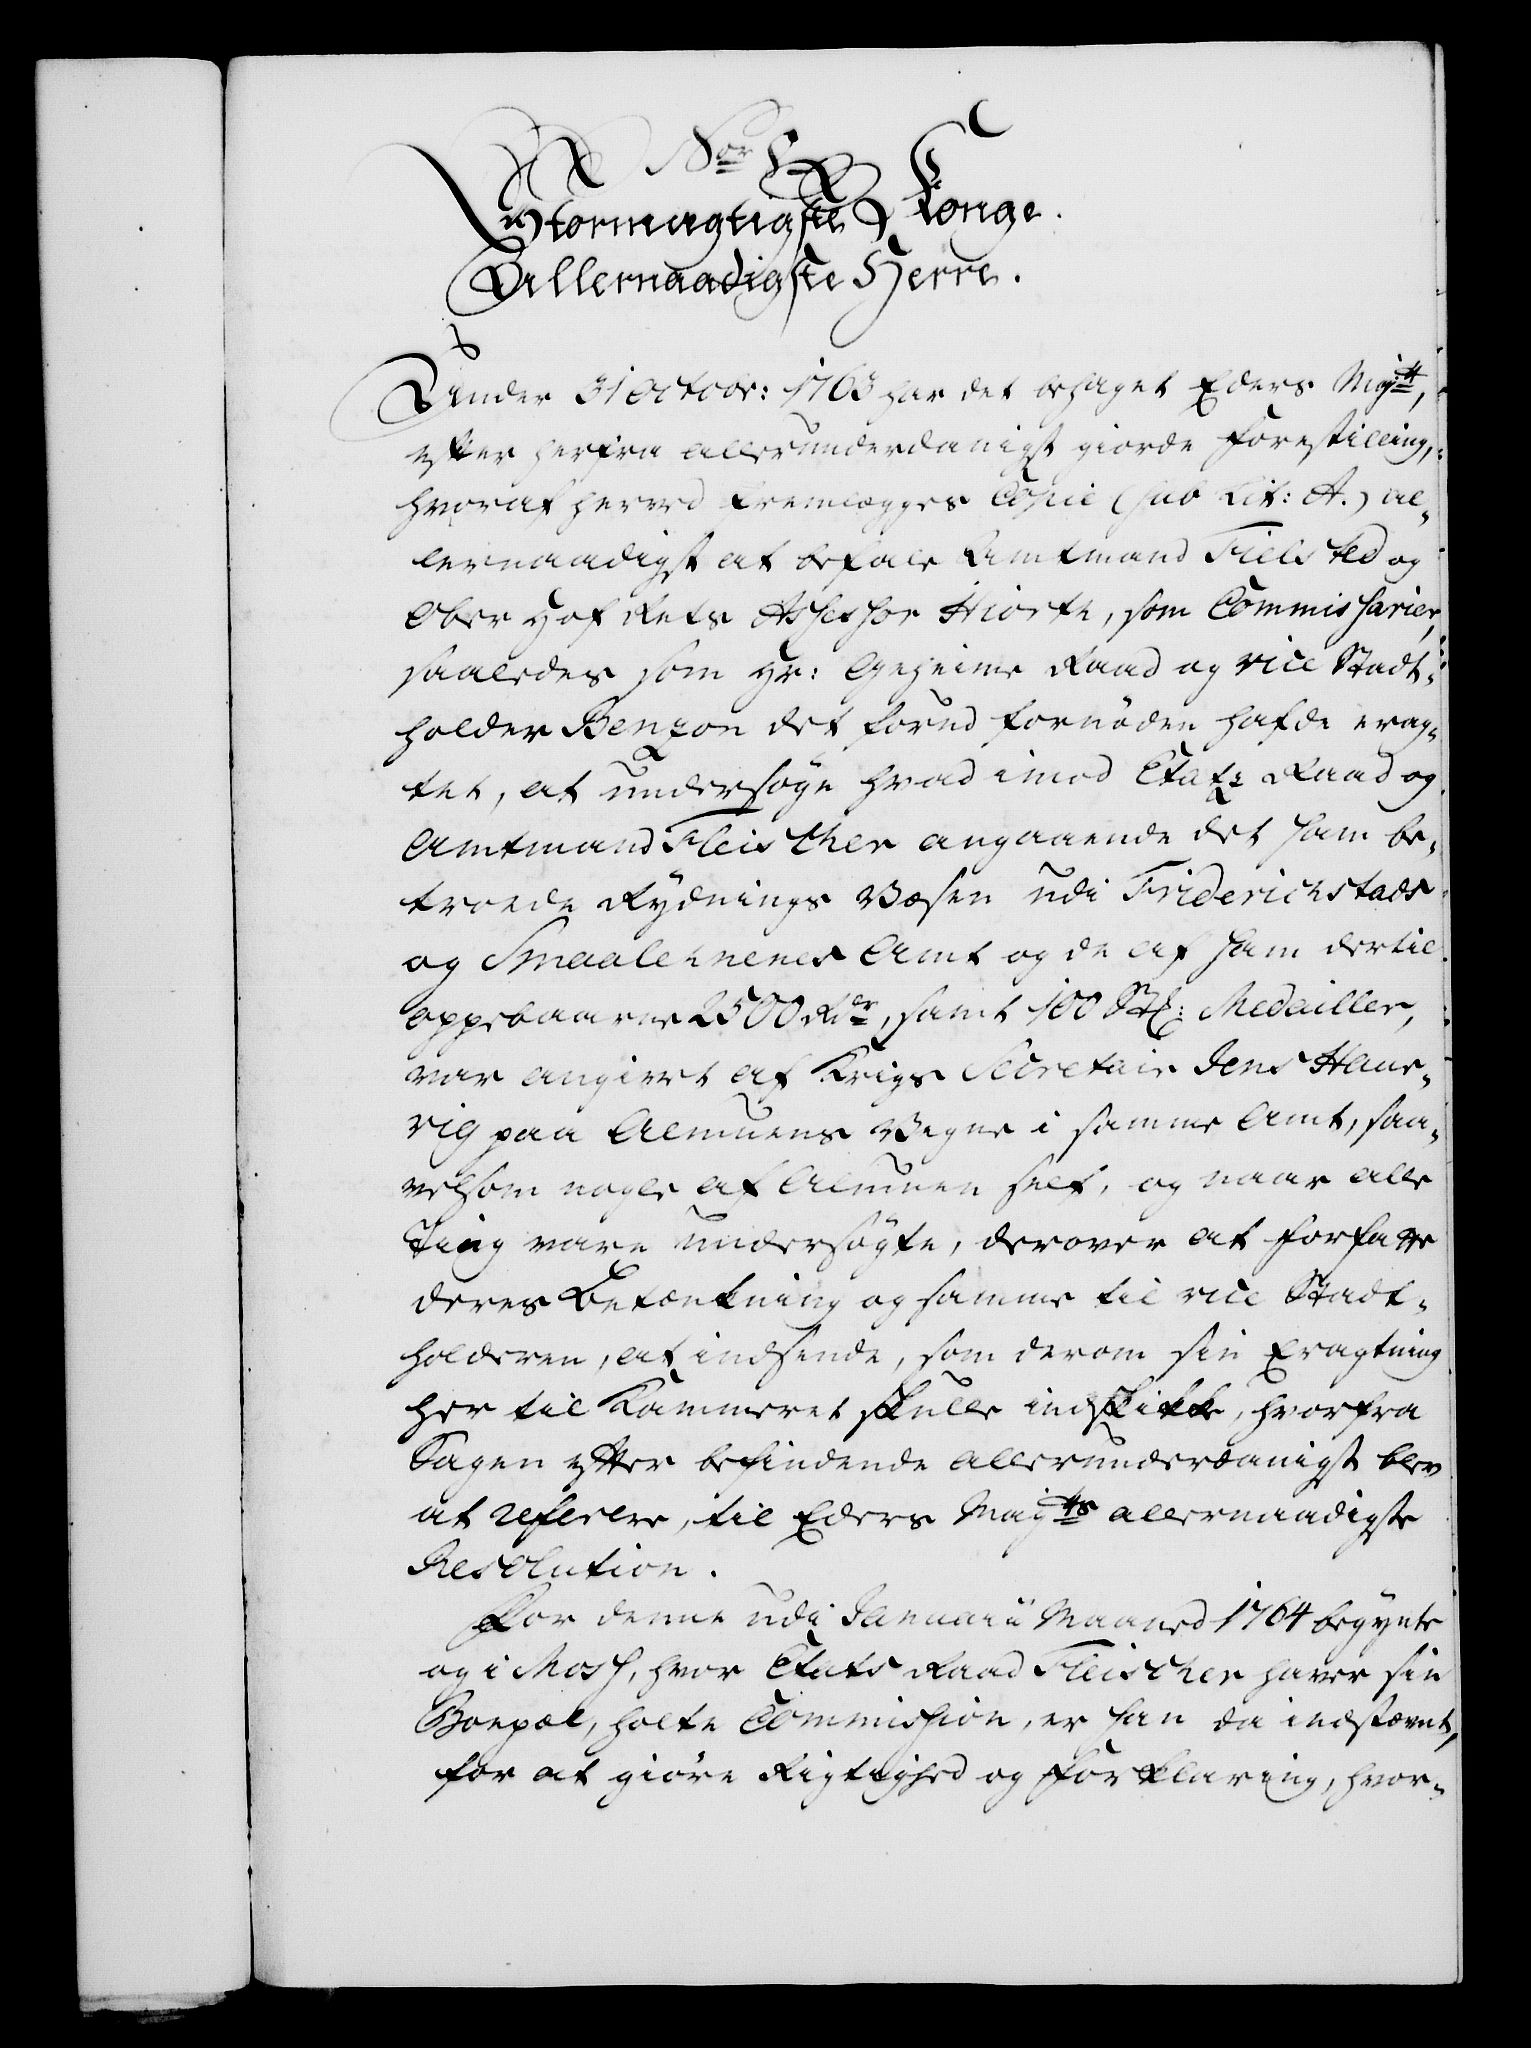 Nor 1
Stormægtigste Konge.
Allernaadigste Herre.
Under 31 Octobr: 1763 har det behaget Eders Majtt,
efter herfra allerunderdanigst giorde Forestilling,
hvoraf herved fremlægges Copie (sub Lit: A.) al-
lernaadigst at befale Amtmand Fielsted og
Ober Hof Rets Assessor Hiorth, som Commissarier,
saaledes som Hr: Geheime Raad og vice Stadt-
holder Benzon det forud fornöden hafde erag-
tet, at undersöge hvad imod Etats Raad og
Amtmand Fleischer angaaende det ham be-
troede Rydnings Væsen udi Friderichstads
og Smaalehnenes Amt og de af ham dertil
oppebaarne 2500 Rdr, samt 100 Stk: Medailler,
var angivet af Krigs Secretair Jens Haue-
rig paa Almuens Vegne i samme Amt, saa-
velsom nogle af Almuen self, og naar alle
Ting vare undersögte, derover at forfatte
deres Betænkning og samme til vice Stadt-
holderen, at indsende, som derom sin Eragtning
her til Kammeret skulle indskikke, hvorfra
Sagen efter befindende allerunderdanigst blev
at referere, til Eders Majts allernaadigste
Resolution.
For denne udi Januarii Maaned 1764 begynte
og i Moss, hvor Etats Raad Fleischer haver sin
Boepæl, holte Commission, er han da indstævnt,
for at giöre Rigtighed og Forklaring, hvor-